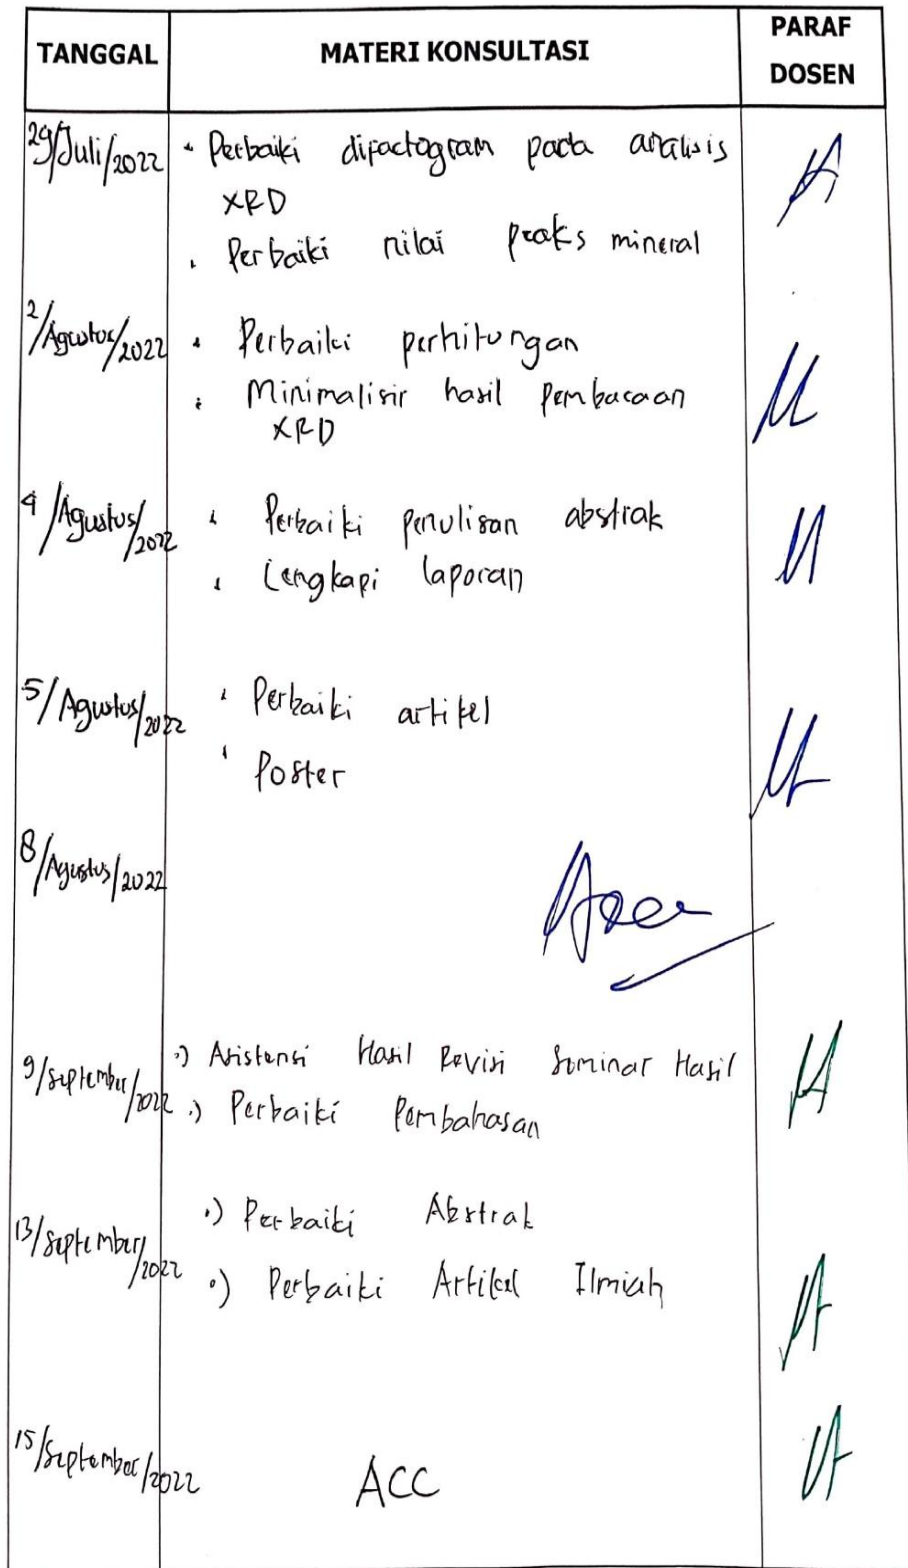 TANGGAL MATERI KONSULTASI PARAF DOSEN
29/Juli/2022 • Perbaiki difactogram pada analisis
XRD
• Perbaiki nilai peaks mineral
2/Agustus/2022 • Perbaiki perhitungan
• Minimalisir hasil pembacaan
XRD
4/Agustus/2022 • Perbaiki penulisan abstrak
• Lengkapi laporan
5/Agustus/2022 • Perbaiki artikel
• Poster
8/Agustus/2022
9/September/2022 •) Asistensi Hasil Revisi Seminar Hasil
•) Perbaiki Pembahasan
13/September/2022 •) Perbaiki Abstrak
•) Perbaiki Artikel Ilmiah
15/September/2022 ACC